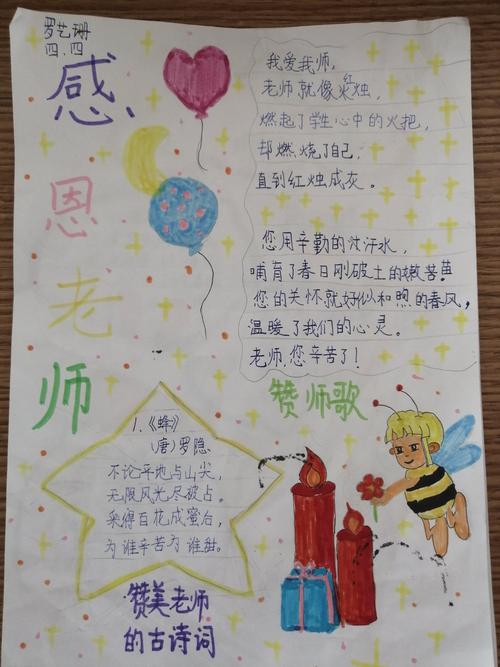 罗艺珊
四.四
感
恩
老
师
我爱我师，
老师就像红烛，
燃起了学生心中的火把，
却燃烧了自己，
直到红烛成灰。
您用辛勤的汗水，
哺育了春日刚破土的嫩苗
您的关怀就好似和煦的春风，
温暖了我们的心灵。
老师，您辛苦了！
赞师歌
1.《蜂》
(唐)罗隐
不论平地与山尖，
无限风光尽被占。
采得百花成蜜后，
为谁辛苦为谁甜。
赞美老师
的古诗词